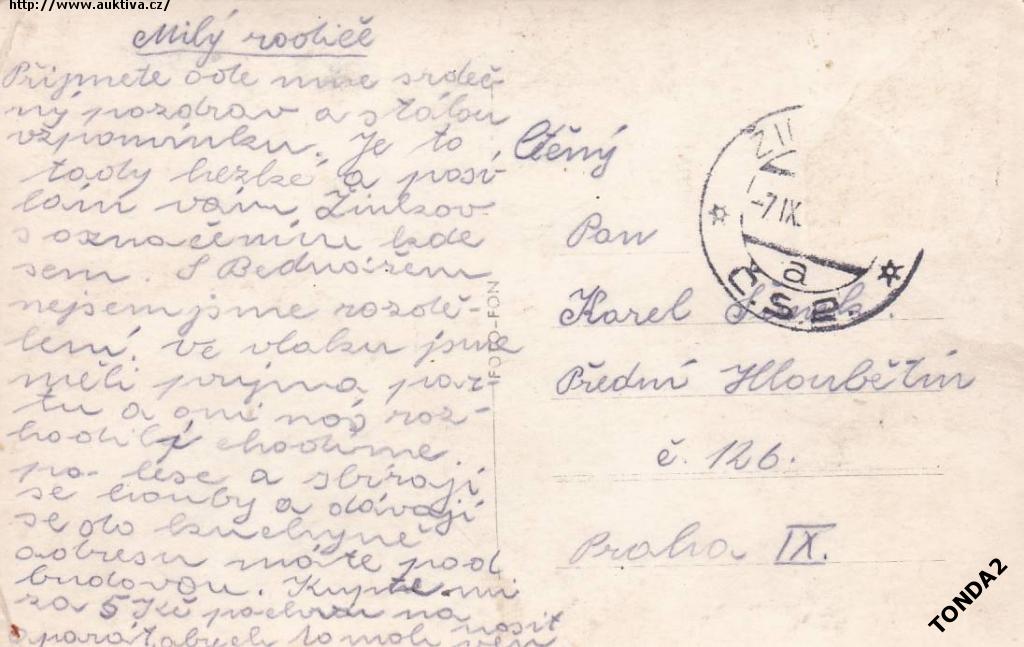 http://www.auktiva.cz/
Milý rodiče
Přijmete ode mne srdeč-
ný pozdrav a stálou
vzpomínku. Je to
tady hezké a posí
lám vám Žinkov
s označením kde
sem. S Bednářem
nejsem jsme rozdě-
lení. Ve vlaku jsme
měli prijma par-
tu a oni nás roz-
hodili chodíme
po lese a sbírají
se houby a dávají
se do kuchyně
adresu máte pod
budovou. Kupte mi
za 5 Kč na
nosit
aparát abych to moh ven
Ctěný
Pan
Karel
Přední Hloubětín
č. 126.
Praha IX.
FOTO-FON
-7 IX.
a
TONDA2